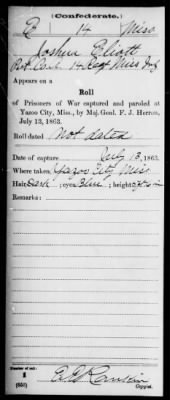 (Confederate.)
E 14 Miss.
Joshua Elliott
Pvt. Co. E 14 Regt Miss Inf
Appears on a
Roll
of Prisoners of War captured and paroled at
Yazoo City, Miss., by Maj. Genl. F. J. Herron,
July 13, 1863.
Roll dated Not dated
Date of capture July 13, 1863.
Where taken Yazoo City Miss
Hair Dark; eyes Blue; height
Remarks:
Number of roll:
1
(656)
Copyist.